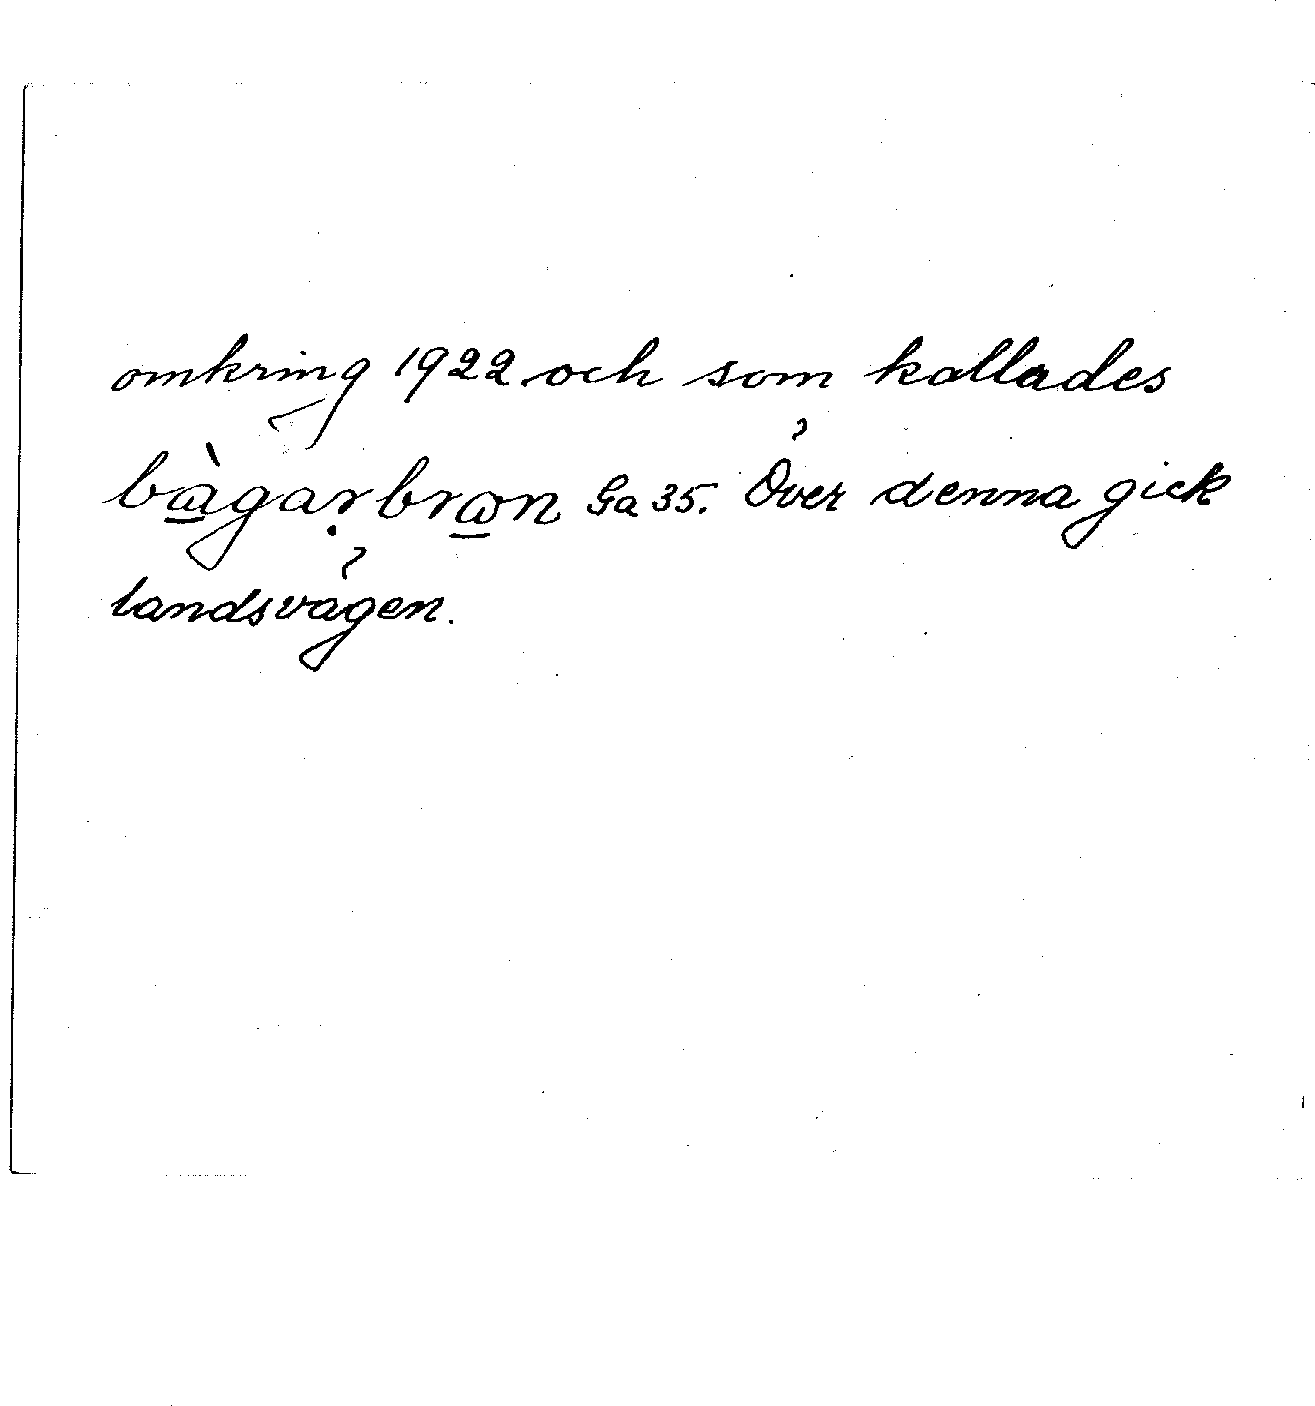 omkring 1922 och som kallades
bàgarbron Ga 35. Över denna gick
landsvägen.